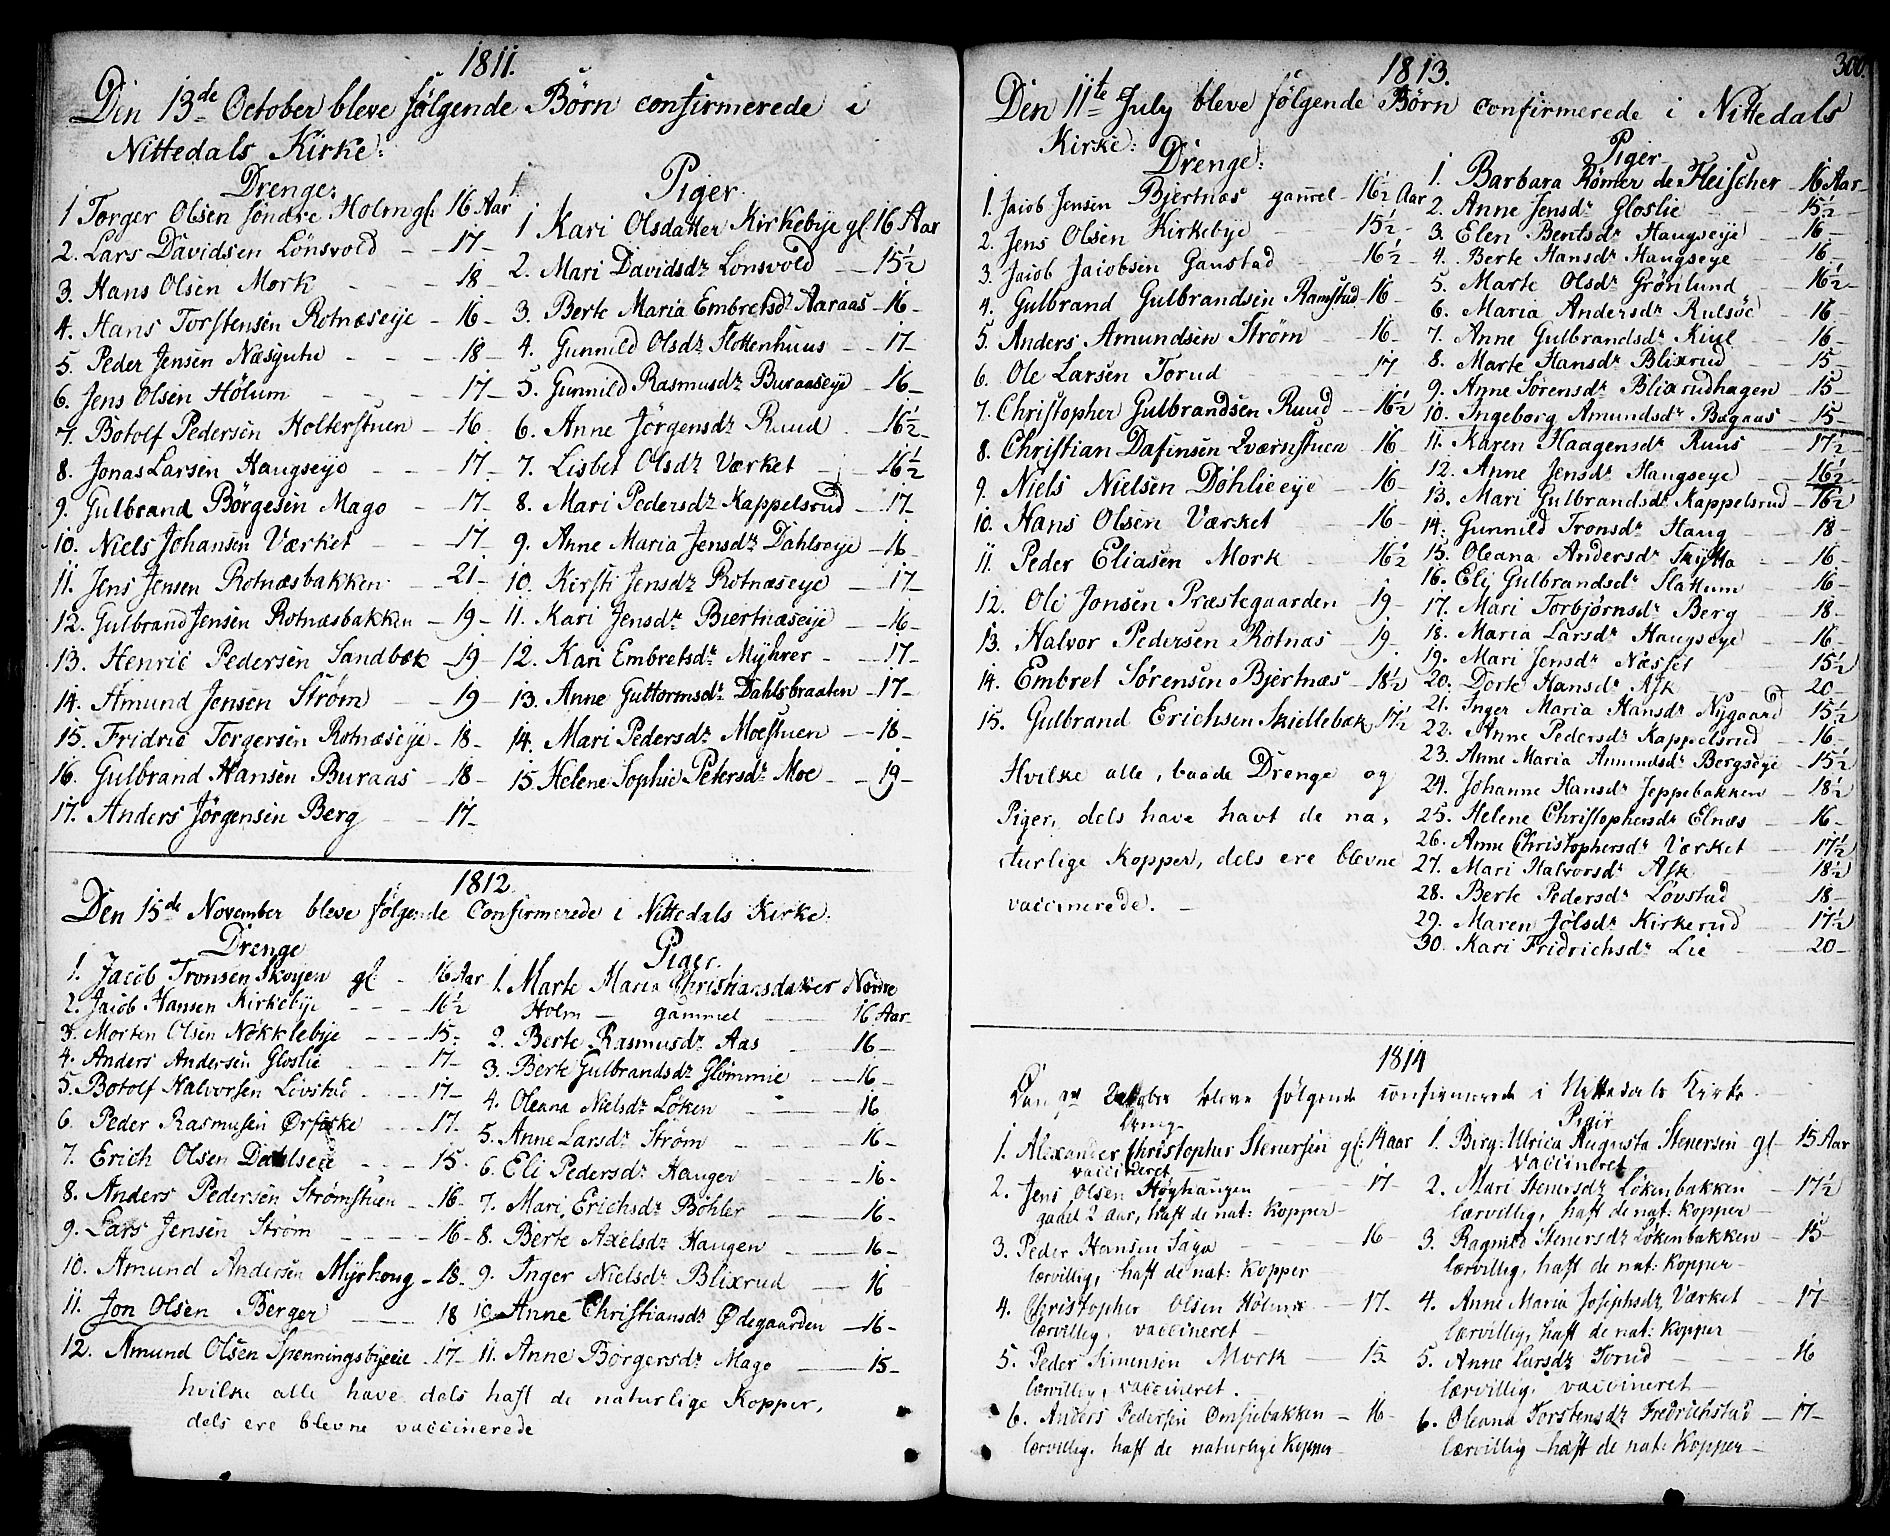 1811.
Den 13de October bleve følgende Børn confirmerede i
Nittedals Kirke:
Drenge.
1 Torger Olsen søndre Holm gl: 16 Aar
2. Lars Davidsen Lønsvold - 17 -
3. Hans Olsen Mork - - - 18 -
4. Hans Torstensen Rotnæseije - 16 -
5. Peder Jensen Næsgutu - - - 18 -
6. Jens Olsen Hølum - - - 17 -
7. Botolf Pedersen Holterstuen - 16
8. Jonas Larsen Haugseije - - - 17 -
9. Gulbrand Börgesen Mago - 17 -
10. Niels Johansen Værket - - 17 -
11. Jens Jensen Rotnæsbakken - 21 -
12. Gulbrand Jensen Rotnæsbakken - 19 -
13. Henric Pedersen Sandbæk - 19 -
14. Amund Jensen Strøm - - 19 -
15. Fridric Torgersen Rotnæseije - 18 -
16. Gulbrand Hansen Buraas - 18 -
17. Anders Jörgensen Berg - - 17 -
Piger.
1 Kari Olsdatter Kirkebye gl 16 Aar
2. Mari Davidsdr Lonsvold - 15½
3. Berte Maria Embretsdr Aaraas - 16 -
4. Gunnild Olsdr Slottenhuus - 17 -
5. Gunnild Rasmusdr Buraaseije - 16 -
6. Anne Jörgensdr Ruud - 16½ -
7. Lisbet Olsdr Værket - 16½
8. Mari Pedersdr Kappelsrud - 17 -
9. Anne Maria Jensdr Dahlseije - 16 -
10. Kirsti Jensdr Rotnæseije - 17 -
11. Kari Jensdr Biertnæseije - 16 -
12. Kari Embretsdr Myhrer - 17 -
13. Anne Guttormsdr Dahlsbraaten - 17 -
14. Mari Pedersdr Moestuen - 18 -
15. Helene Sophie Petersdr Moe - 19 -
1812.
Den 15de November bleve følgende Confirmerede i Nittedals Kirke.
Drenge
1. Jacob Tronsen Skøyen gl - 16 Aar
2. Jacob Hansen Kirkebije - - - 16½
3. Morten Olsen Nökklebije - - - 15 -
4. Anders Andersen Gloslie - - - 17 -
5. Botolf Halvorsen Lövstad - - - 17 -
6. Peder Rasmusen Ørfiske - - - 17 -
7. Erich Olsen Dahlseie - - - 15 -
8. Anders Pedersen Strømstuen - 16 -
9. Lars Jensen Strøm - - - 16 -
10. Amund Andersen Myrhoug - 18 -
11. Jon Olsen Berger - - - 18
12. Amund Olsen Spenningsbyeeie - 17 -
Piger
1. Marte Maria Christiansdatter Nordre
Holm - gammel - 16 Aar
2. Berte Rasmusdr Aas - 16 -
3. Berte Gulbrandsdr Glömmie - 16 -
4. Oleana Nielsdr Löken - 16
5. Anne Larsdr Strøm - 16 -
6. Eli Pedersdr Haugen - 16 -
7. Mari Erichsdr Böhler - 16 -
8. Berte Axelsdr Haugen - 16 -
9. Inger Nielsdr Blixrud - 16
10. Anne Christiansdr Ødegaarden - 16 -
11. Anne Börgersdr Mago - 15 -
hvilke alle have dels haft de naturlige Kopper,
dels ere blevne vaccinerede
300.
1813.
Den 11te July bleve følgende Børn confirmerede i Nittedals
Kirke:
Drenge:
1. Jacob Jensen Bjertnæs gammel - 16½ Aar
2. Jens Olsen Kirkebye - 15½ -
3. Jacob Jacobsen Gaustad - 16½ -
4. Gulbrand Gulbrandsen Ramstud 16 -
5. Anders Amundsen Strøm - 16 -
6. Ole Larsen Torud - 17
7. Christopher Gulbrandsen Ruud - 16½
8. Christian Dafinsen Qværnstuen 16 -
9. Niels Nielsen Döhlieeije - 16 -
10. Hans Olsen Værket - 16 -
11. Peder Eliasen Mork - 16½
12. Ole Jonsen Præstegaarden - 19 -
13. Halvor Pedersen Rotnæs - 19.
14. Embret Sørensen Bjertnæs - 18½
15. Gulbrand Erichsen Skillebæk 17½
Hvilke alle, baade Drenge og
Piger, dels have havt de na-
turlige Kopper, dels ere blevne
vaccinerede. -
Piger
1. Barbara Römer de Fleischer - 16 Aar
2. Anne Jensdr Gloslie - 15½ -
3. Elen Bentsdr Haugseije - 16 -
4. Berte Hansdr Haugseye - 16 -
5. Marte Olsdr Grönlund - 16½ -
6. Maria Andersdr Rulsöe - 16 -
7. Anne Gulbrandsdr Kiul - 16 -
8. Marte Hansdr Blixrud - 15 -
9. Anne Sørensdr Blixrudhagen - 15 -
10. Ingeborg Amundsdr Bagaas - 15 -
11. Karen Haagensdr Ruus - 17½
12. Anne Jensdr Haugseye - 16½ -
13. Mari Gulbrandsdr Kappelsrud - 16½
14. Gunnild Tronsdr Haug - 18 -
15. Oleana Andersdr Skytta - 16 -
16. Eli Gulbrandsdr Slattum - 16 -
17. Mari Torbjørnsdr Berg - 18 -
18. Maria Larsdr Haugseye - 16 -
19. Mari Jensdr Næsset - 15½
20. Dorte Hansdr Ask - 20 -
21. Inger Maria Hansdr Nygaard 15½
22. Anne Pedersdr Kappelsrud - 16 -
23. Anne Maria Amundsdr Bergseye - 15½
24. Johanne Hansdr Jeppebakken - 18½
25. Helene Christophersdr Elnæs - 16 -
26. Anne Christophersdr Værket - 17½
27. Mari Halvorsdr Ask - 18½
28. Berte Pedersdr Lövstad - 18 -
29. Maren Jölsdr Kirkerud - 17½
30. Kari Fridrichsdr Lie - 20 -
1814
Den October bleve følgende confirmerede i Nittedals Kirke.
Dreng
1. Alexander Christopher Stenersen gl: 14 aar
vaccineret -
2. Jens Olsen Høyhaugen - 17
gaaet 2 aar, haft de nat: Kopper -
3. Peder Hansen Saga - 16 -
lærvillig, haft de nat: Kopper
4. Christopher Olsen Holmen - 17 -
lærvillig, vaccineret -
5. Peder Simensen Mork - 15
lærvillig, vaccineret.
6. Anders Pedersen Omsiebakken - 16 -
lærvillig. haft de naturlige Kopper -
Piger
1. Birg: Ulrica Augusta Stenersen gl - 15 Aar
vaccineret -
2. Mari Stenersdr Lökenbakken - 17½
lærvillig, haft de nat: Kopper -
3. Ragnild Stenersdr Lökenbakken - 15 -
lærvillig, haft de nat: Kopper -
4. Anne Maria Josephsdr Værket - 17 -
lærvillig, haft de nat: Kopper
5. Anne Larsdr Torud - 16
lærvillig, vaccineret -
6. Oleana Torstensdr Fredrichstad - 17 -
lærvillig - haft de nat: Kopper -